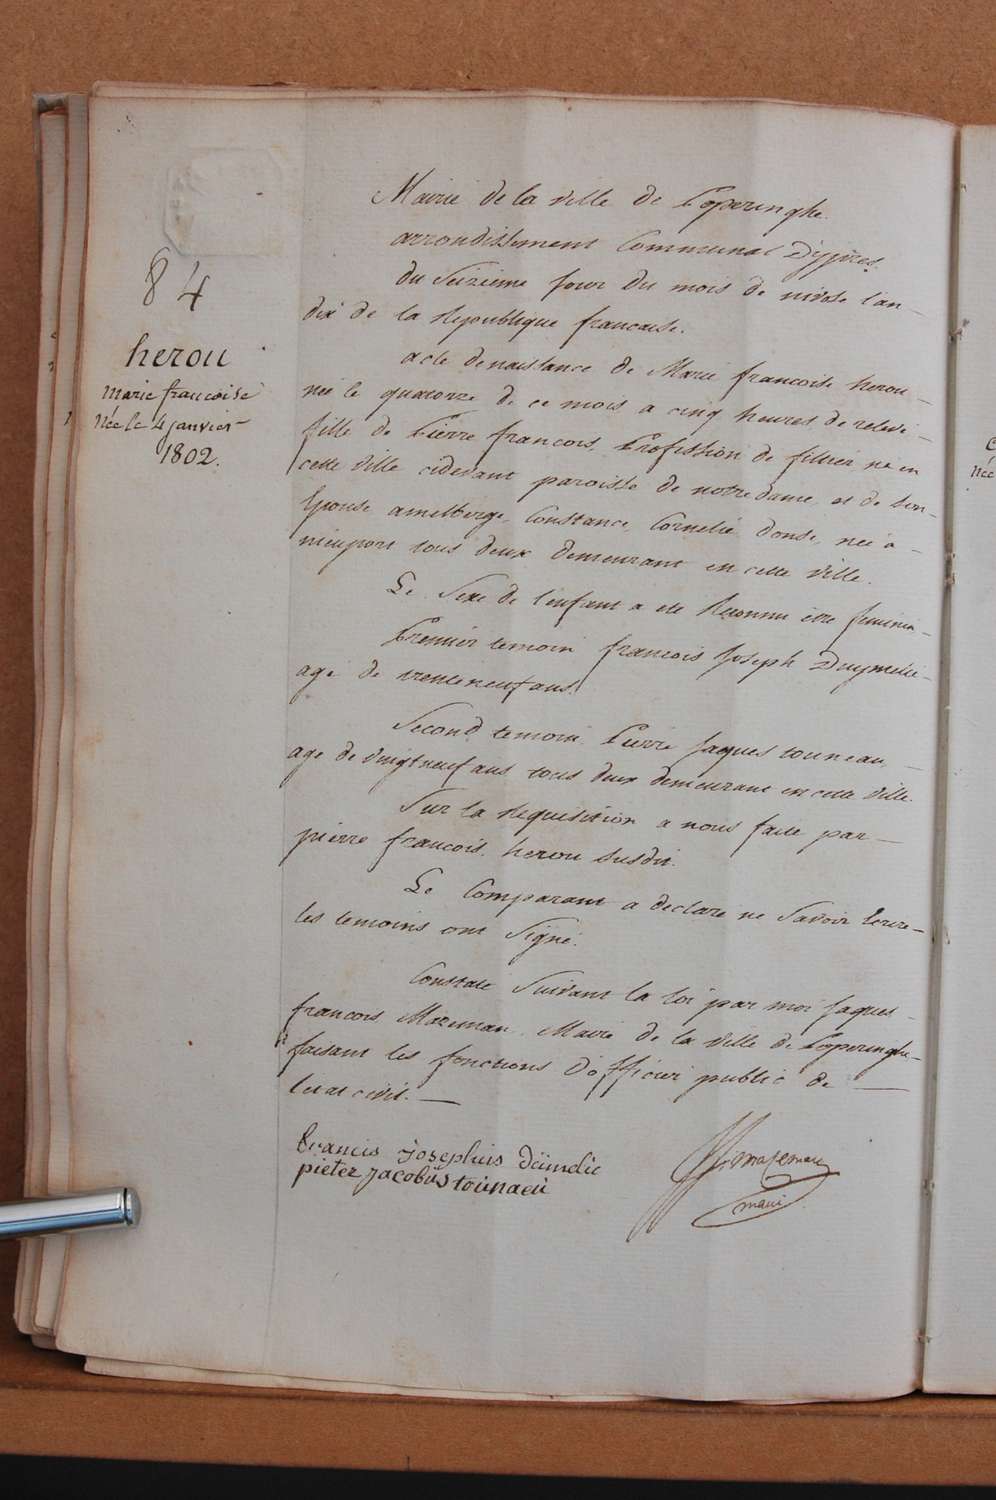 84
herou
marie francoise
née le 4 janvier
1802.
Mairie de la ville de Poperinghe.
arrondissement Communal D'ypres.
du Seizieme jour du mois de nivose l'an
dix de la Republique francaise.
acte de naissance de Marie francoise herou
née le quatorze de ce mois a cinq heures de relevé
fille de Pierre francois, Profession de filtier né en
cette ville cidevant paroisse de notre dame, et de son
Epouse amelberge, Constance, Cornelie donse, neé a
nieuport tous deux demeurant en cette ville.
Le Sexe de l'enfant a eté Reconnu etre feminin
Premier temoin francois Joseph Duymelie
agé de trente neuf ans.
Second temoin Pierre Jaques tourneau
agé de vingt neuf ans tous deux demeurant en cette ville.
Sur la Requisition a nous faite par
pierre francois herou susdit.
Le Comparant a declaré ne Savoir Ecrire
les temoins ont Signé.
Constaté Suivant la loi par moi Jaques
francois Mazeman Maire de la Ville de Poperinghe
faisant les fonctions d'officier public de
l'etat civil.
francis josephus dümelie
pieter jacobüs toünaeü
J f mazeman
maire
née